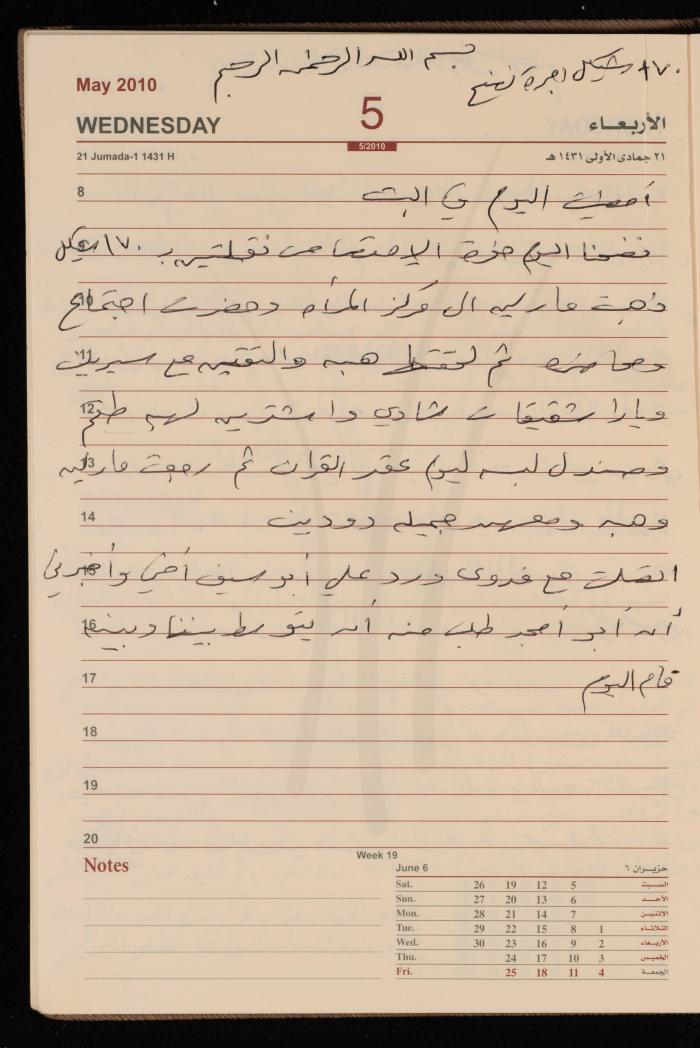 بسم الله الرحمن الرحيم
١٧٠ شيكل اجرة نضح
May 2010
WEDNESDAY
5
5/2010
الأربعـاء
21 Jumada-1 1431 H
٢١ جمادى الأولى ١٤٣١ هـ
8 أمضيت اليوم في البيت
نضحنا اليوم حفرة الامتصاص نقلتين بـ ١٧٠ شيكل
10 ذهبت مارلين الى مركز المرأه وحضرت اجتماع
11 ومحاضره ثم لحقتها هبه والتقين مع سيرين
12 ويارا شقيقات شادي واشترين لهبه طقم
13 وصندل لبسه ليوم عقد القران ثم رجعت مارلين
14 وهبه ومعهن جميله دودين
15 اتصلت مع فدوى ورد علي أبو سيف أخي وأخبرني
16 أن أبو أمجد طلب منه أن يتوسط بيننا وبينه
17 قام اليوم
18
19
20
Notes
Week 19
June 6 حزيـران ٦
Sat. 26 19 12 5 السبت
Sun. 27 20 13 6 الأحد
Mon. 28 21 14 7 الاثنين
Tue. 29 22 15 8 1 الثلاثاء
Wed. 30 23 16 9 2 الأربعاء
Thu. 24 17 10 3 الخميس
Fri. 25 18 11 4 الجمعة